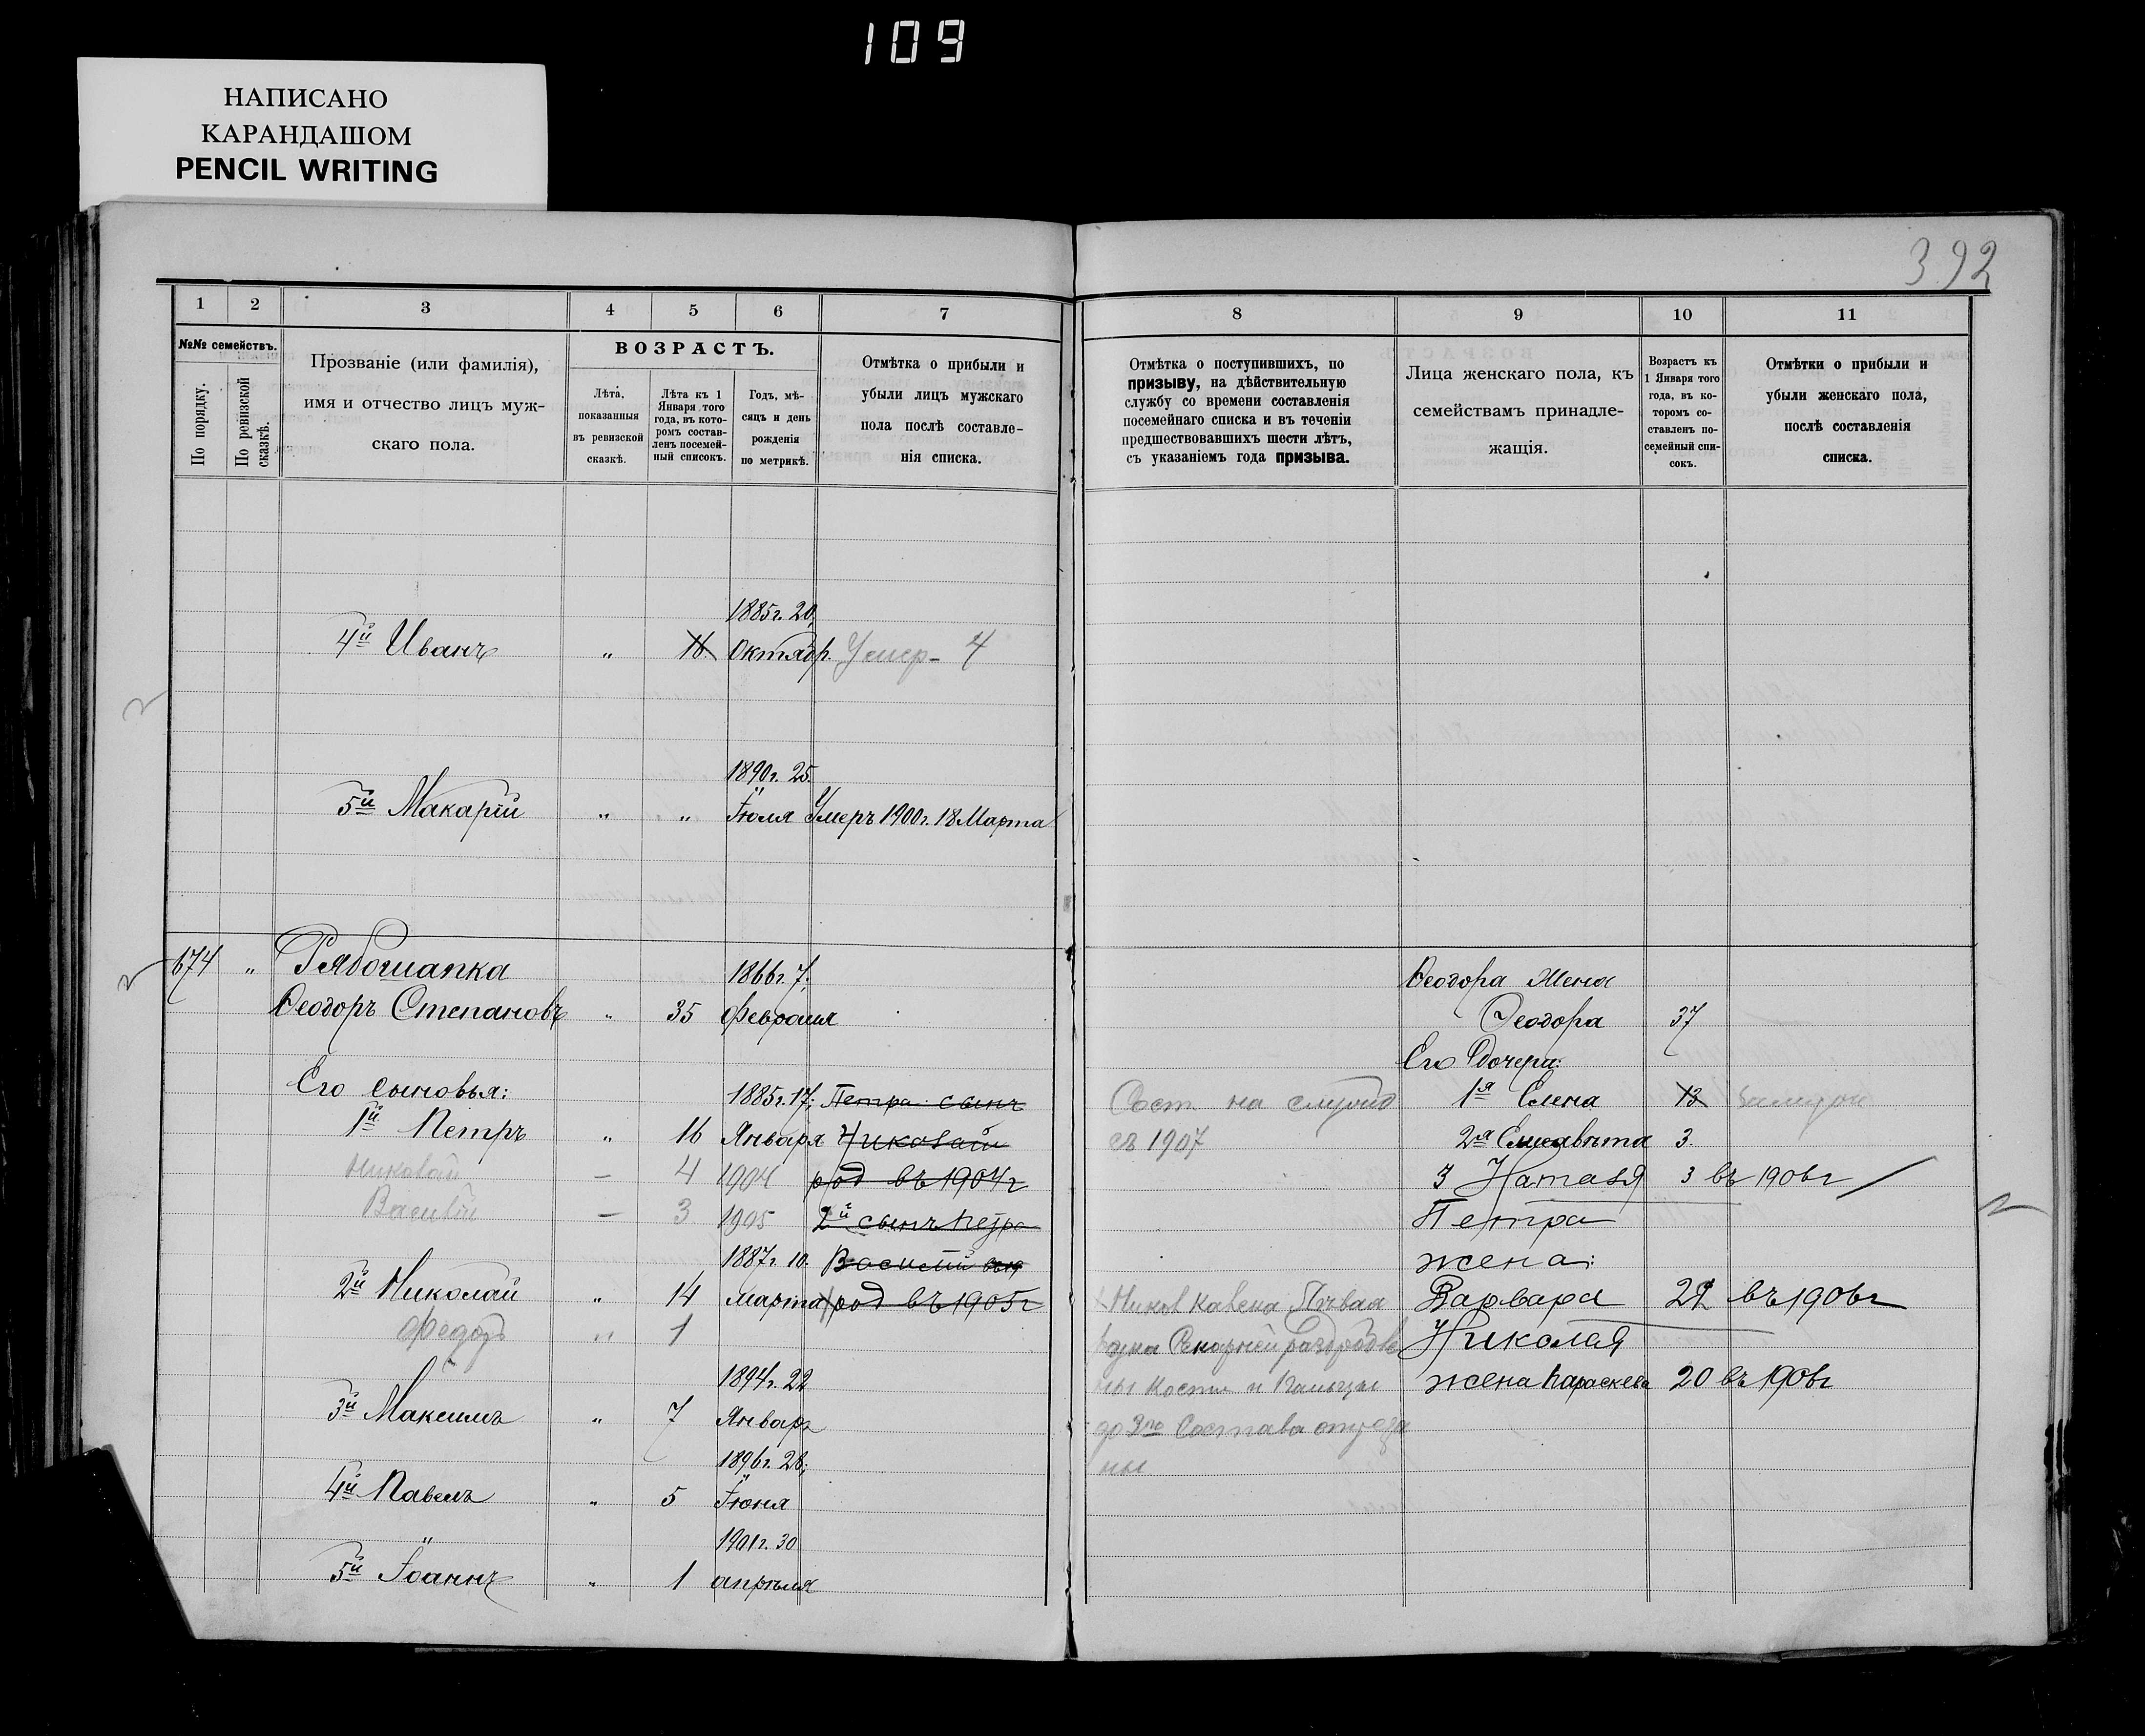 109
НАПИСАНО
КАРАНДАШОМ
PENCIL WRITING
392
1 2 3 4 5 6 7
№№ семействъ.
По порядку.
По ревизской сказкѣ.
Прозваніе (или фамилія),
имя и отчество лицъ муж-
скаго пола.
ВОЗРАСТЪ.
Лѣта,
показанныя
въ ревизской
сказкѣ.
Лѣта къ 1
Января того
года, въ кото-
ромъ состав-
ленъ посемей-
ный списокъ.
Годъ, мѣ-
сяцъ и день
рожденія
по метрикѣ.
Отмѣтка о прибыли и
убыли лицъ мужскаго
пола послѣ составле-
нія списка.
1885г. 20,
4й Иванъ „ 16 Октябр. Умер- 4
1890г. 25.
5й Макарій „ „ Іюля Умеръ 1900г. 18 Марта
674 „ Рябошапка 1866г. 7,
Ѳеодоръ Степановъ „ 35 Февраля
Его сыновья: 1885г. 17, Петра сынъ
1й Петръ „ 16 Января Николай
Николай — 4 1904 род въ 1904г
Василій — 3 1905 2й сынъ Петра
1887г. 10. Василий
2й Николай „ 14 марта род въ 1905г
Федоръ „ 1
1894г. 22
3й Максимъ „ 7 Январ
1896г. 28,
4й Павелъ „ 5 Іюня
1901г. 30
5й Іоаннъ „ 1 апрѣля
8 9 10 11
Отмѣтка о поступившихъ, по
призыву, на дѣйствительную
службу со времени составленія
посемейнаго списка и въ теченіи
предшествовавшихъ шести лѣтъ,
съ указаніемъ года призыва.
Лица женскаго пола, къ
семействамъ принадле-
жащія.
Возрастъ къ
1 Января того
года, въ ко-
торомъ со-
ставленъ по-
семейный спи-
сокъ.
Отмѣтки о прибыли и
убыли женскаго пола,
послѣ составленія
списка.
Ѳеодора Жена
Ѳеодора 37
Его Дочери:
Сост. на 1я Елена 13
съ 1907 2я Елисавета 3.
3 Наталя 3 въ 1906г
Петра
жена:
Варвара 22 въ 1906г
Николая
жена Параскева 20 въ 1906г
до 3го Состава
ны